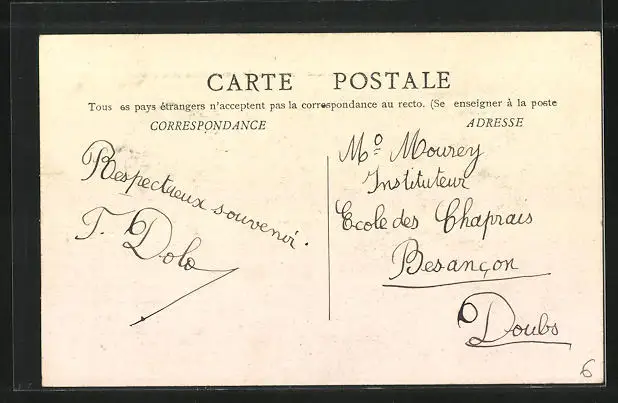 CARTE POSTALE
Tous es pays étrangers n'acceptent pas la correspondance au recto. (Se enseigner à la poste
CORRESPONDANCE
ADRESSE
Respectueux souvenir.
T. Dolo
Mº Mourey
Instituteur
Ecole des Chaprais
Besançon
Doubs
6